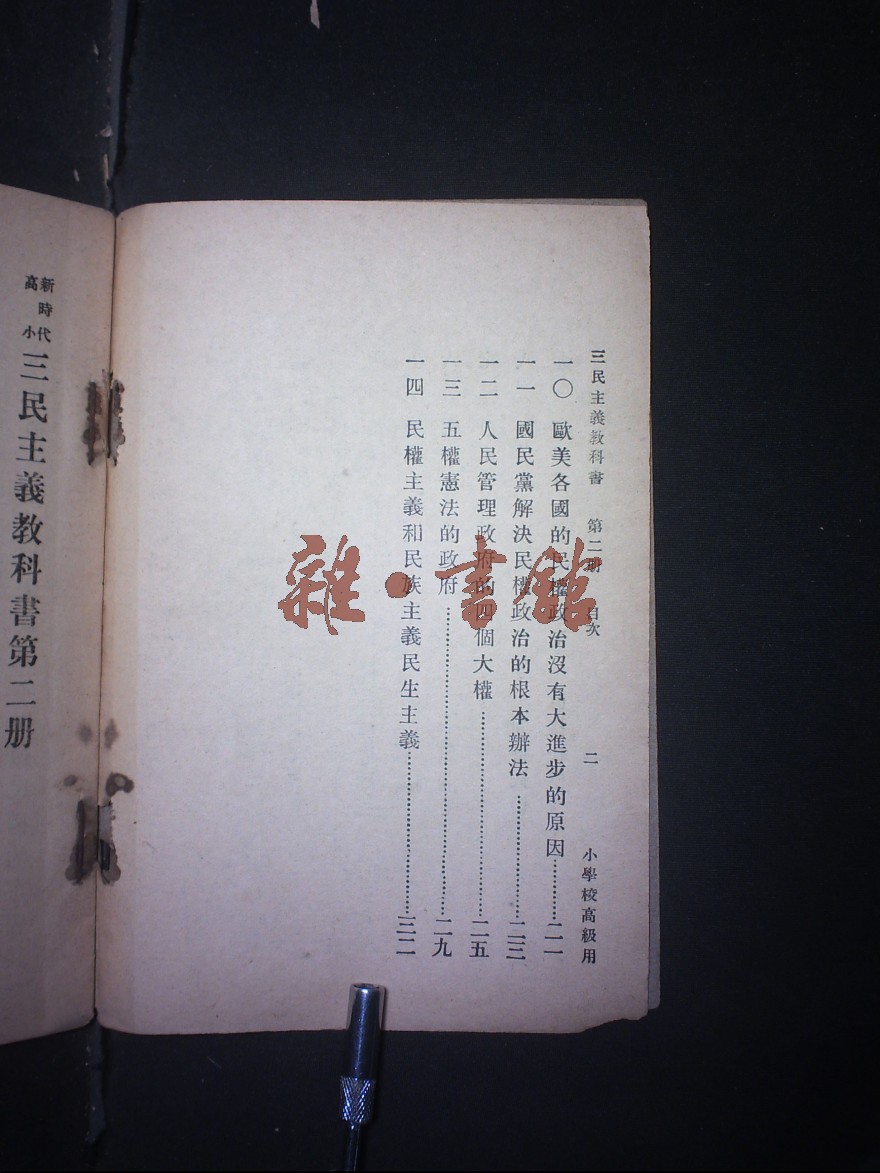 三民主義教科書　第二册　目次　二　小學校高級用
一〇　歐美各國的民權政治沒有大進步的原因…………二一
一一　國民黨解決民權政治的根本辦法…………二三
一二　人民管理政府的四個大權…………二五
一三　五權憲法的政府…………二九
一四　民權主義和民族主義民生主義…………三二
新時代高小三民主義教科書第二册
雜·書館